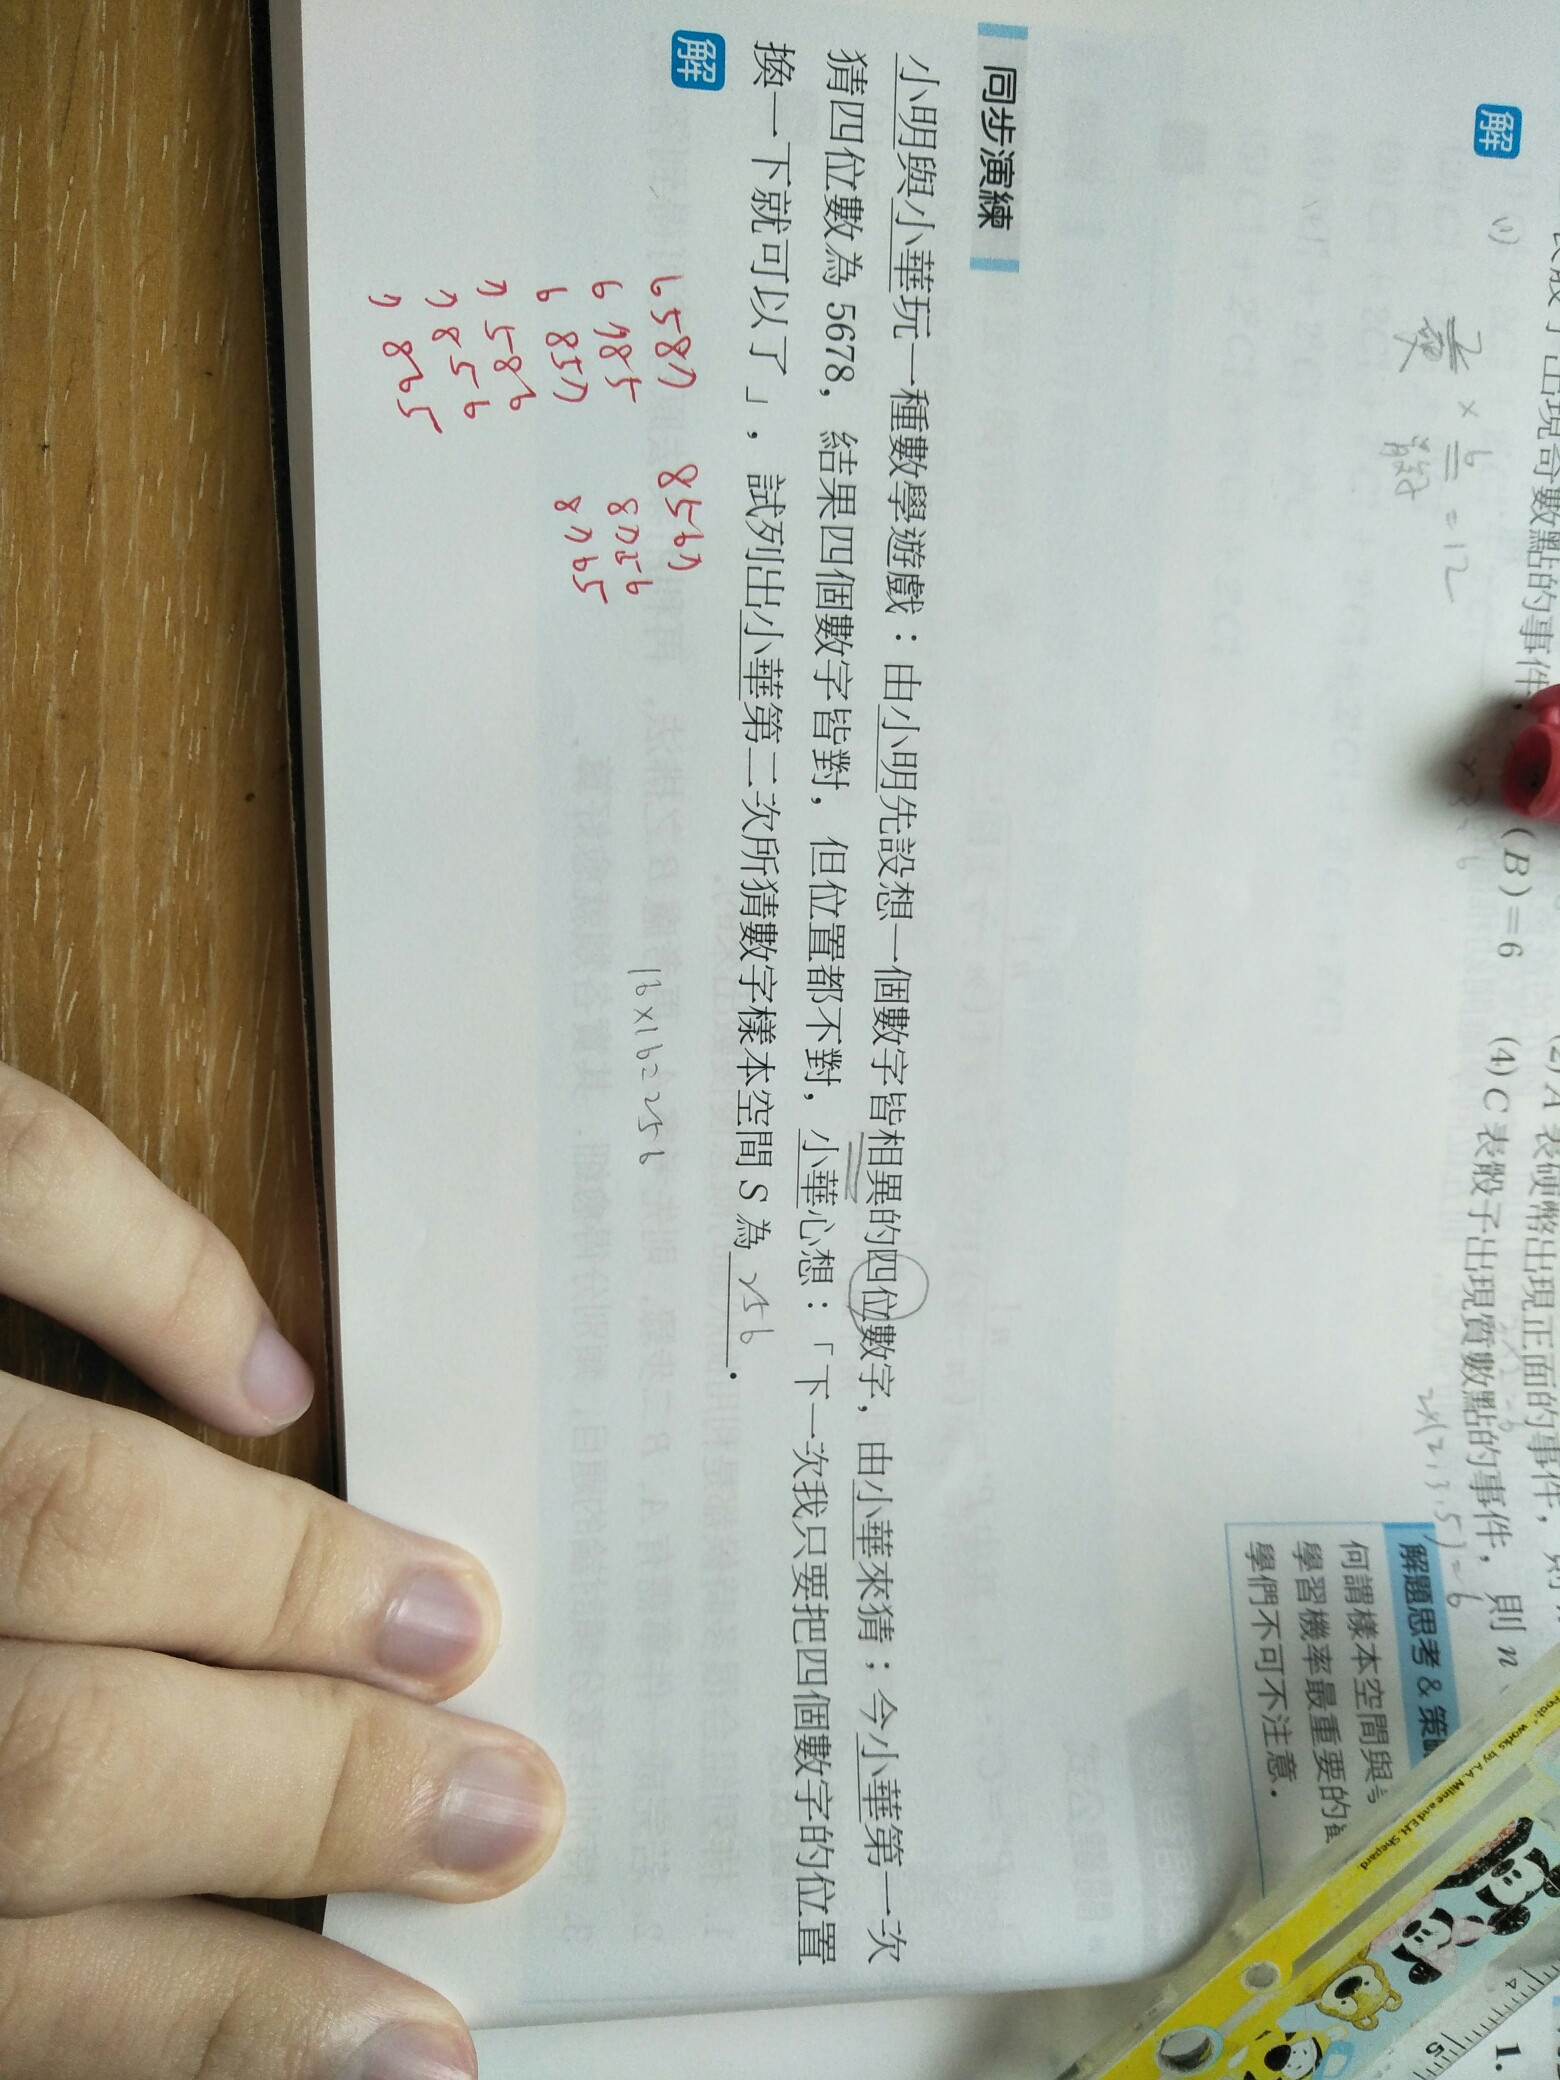 出現奇數點的事件,
(B)=6
(2) A 表硬幣出現正面的事件, 則
(4) C 表骰子出現質數點的事件, 則 n
解
= 12
2×(2,3,5)=6
解題思考 & 策略
何謂樣本空間與
學習機率最重要的
學們不可不注意.
同步演練
小明與小華玩一種數學遊戲:由小明先設想一個數字皆相異的四位數字, 由小華來猜;今小華第一次
猜四位數為 5678, 結果四個數字皆對, 但位置都不對, 小華心想:「下一次我只要把四個數字的位置
換一下就可以了」, 試列出小華第二次所猜數字樣本空間 S 為 256.
解
6587 8567 16×16=256
6785 8756
6857 8765
7586
7856
7865
Pooh" Works by A.A. Milne and E.H. Shepard.
4
5
1.